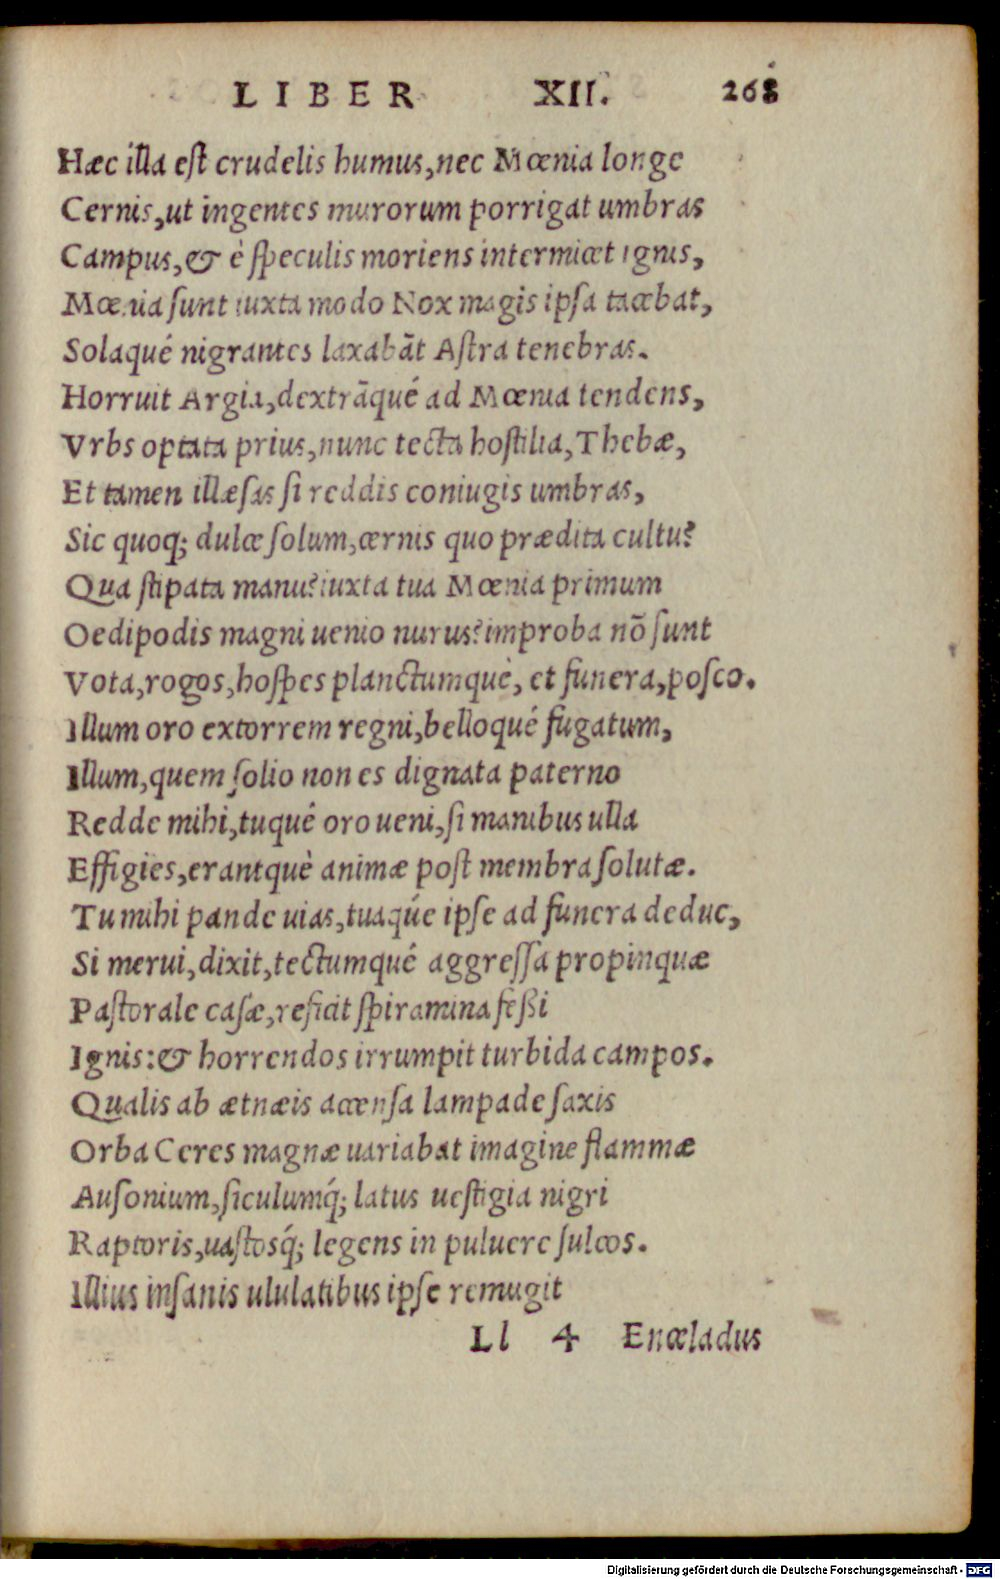 LIBER XII. 268
Hæc illa est crudelis humus, nec Mœnia longe
Cernis, ut ingentes murorum porrigat umbras
Campus, & è speculis moriens intermicet ignis,
Mœnia sunt iuxta modo Nox magis ipsa tacebat,
Solaqué nigrantes laxabāt Astra tenebras.
Horruit Argia, dextrāqué ad Mœnia tendens,
Vrbs optata prius, nunc tecta hostilia, Thebæ,
Et tamen illæsas si reddis coniugis umbras,
Sic quoq; dulce solum, cernis quo prædita cultu?
Qua stipata manu? iuxta tua Mœnia primum
Oedipodis magni uenio nurus? improba nō sunt
Vota, rogos, hospes planctumquè, et funera, posco.
Illum oro extorrem regni, belloqué fugatum,
Illum, quem solio non es dignata paterno
Redde mihi, tuqué oro ueni, si manibus ulla
Effigies, erantquè animæ post membra solutæ.
Tu mihi pande uias, tuaqúe ipse ad funera deduc,
Si merui, dixit, tectumqué aggressa propinquæ
Pastorale casæ, reficit spiramina feßi
Ignis: & horrendos irrumpit turbida campos.
Qualis ab ætnæis accensa lampade saxis
Orba Ceres magnæ uariabat imagine flammæ
Ausonium, siculumq́; latus uestigia nigri
Raptoris, uastosq́; legens in puluere sulcos.
Illius insanis ululatibus ipse remugit
Ll 4 Enceladus
Digitalisierung gefördert durch die Deutsche Forschungsgemeinschaft - DFG